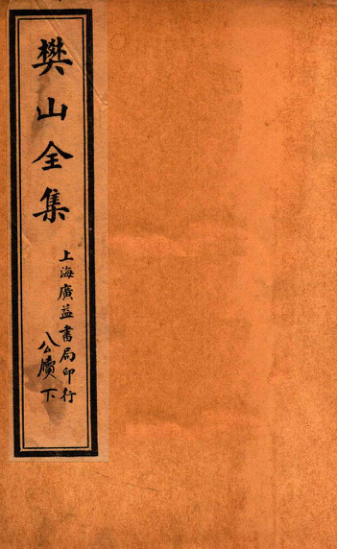 樊山全集
上海廣益書局印行
公牘下